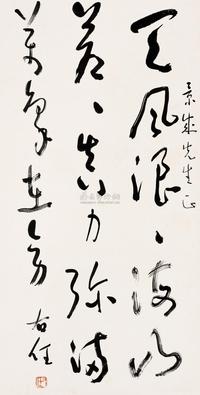 景瑊先生正
天风浪浪海山
苍苍真力弥满
万象在旁
右任